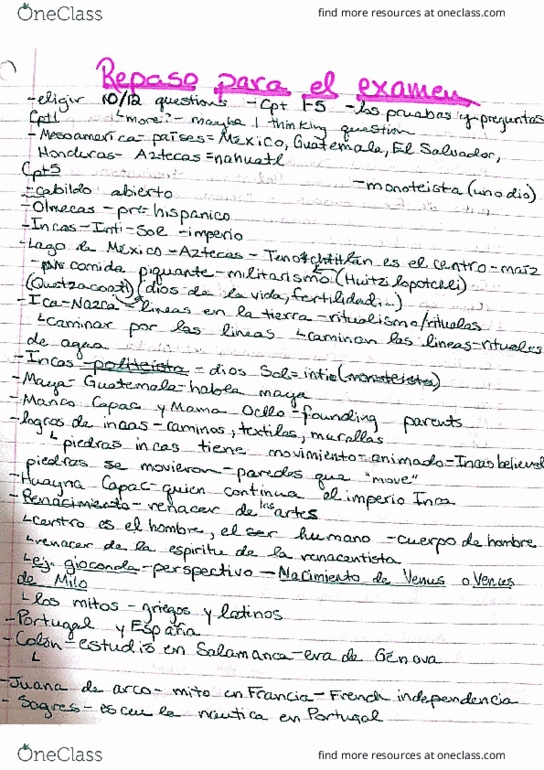 OneClass
find more resources at oneclass.com
Repaso para el examen
-eligir 10/12 questions -Cpt 1-5 -los pruebas y preguntas
Cpt1 ↳more? - maybe 1 thinking question
-Mesoamerica- países=México, Guatemala, El Salvador,
Honduras- Aztecas=nahuatl
Cpt5 -monoteista (uno dio)
-cabildo abierto
-Olmecas - pre hispanico
-Incas-Inti-Sol-imperio
-Lago de México-Aztecas- es el centro-maíz
-comida piquante-militarismo (Huitzilopotchli)
(Quetzacoatl) (dios de la vida, fertilidad...)
-Ica-Nazca-líneas en la tierra-ritualismo/rituales
↳caminar por las lineas ↳caminan las lineas-rituales
de agua
-Incas-politeista-dios Sol=intie(monoteista)
-Maya-Guatemala-habla maya
-Manco Capac y Mama Ocllo-founding parents
-logros de incas-caminos, textiles, murallas
↳piedras incas tiene movimiento=animado-Incas believed
piedras se movieron-paredes que "move"
-Huayna Capac-quien continua el imperio Inca
-Renacimiento-renacer de las artes
↳centro es el hombre, el ser humano -cuerpo de hombre
↳renacer de la espiritu de la renacentista
↳ej. gioconda-perspectivo-Nacimiento de Venus o Venus
de Milo
↳los mitos-griegos y latinos
-Portugal y España
-Colón-estudió en Salamanca-era de Génova
-Juana de arco-mito en Francia-French independencia
-Sagres- la náutica en Portugal
OneClass
find more resources at oneclass.com